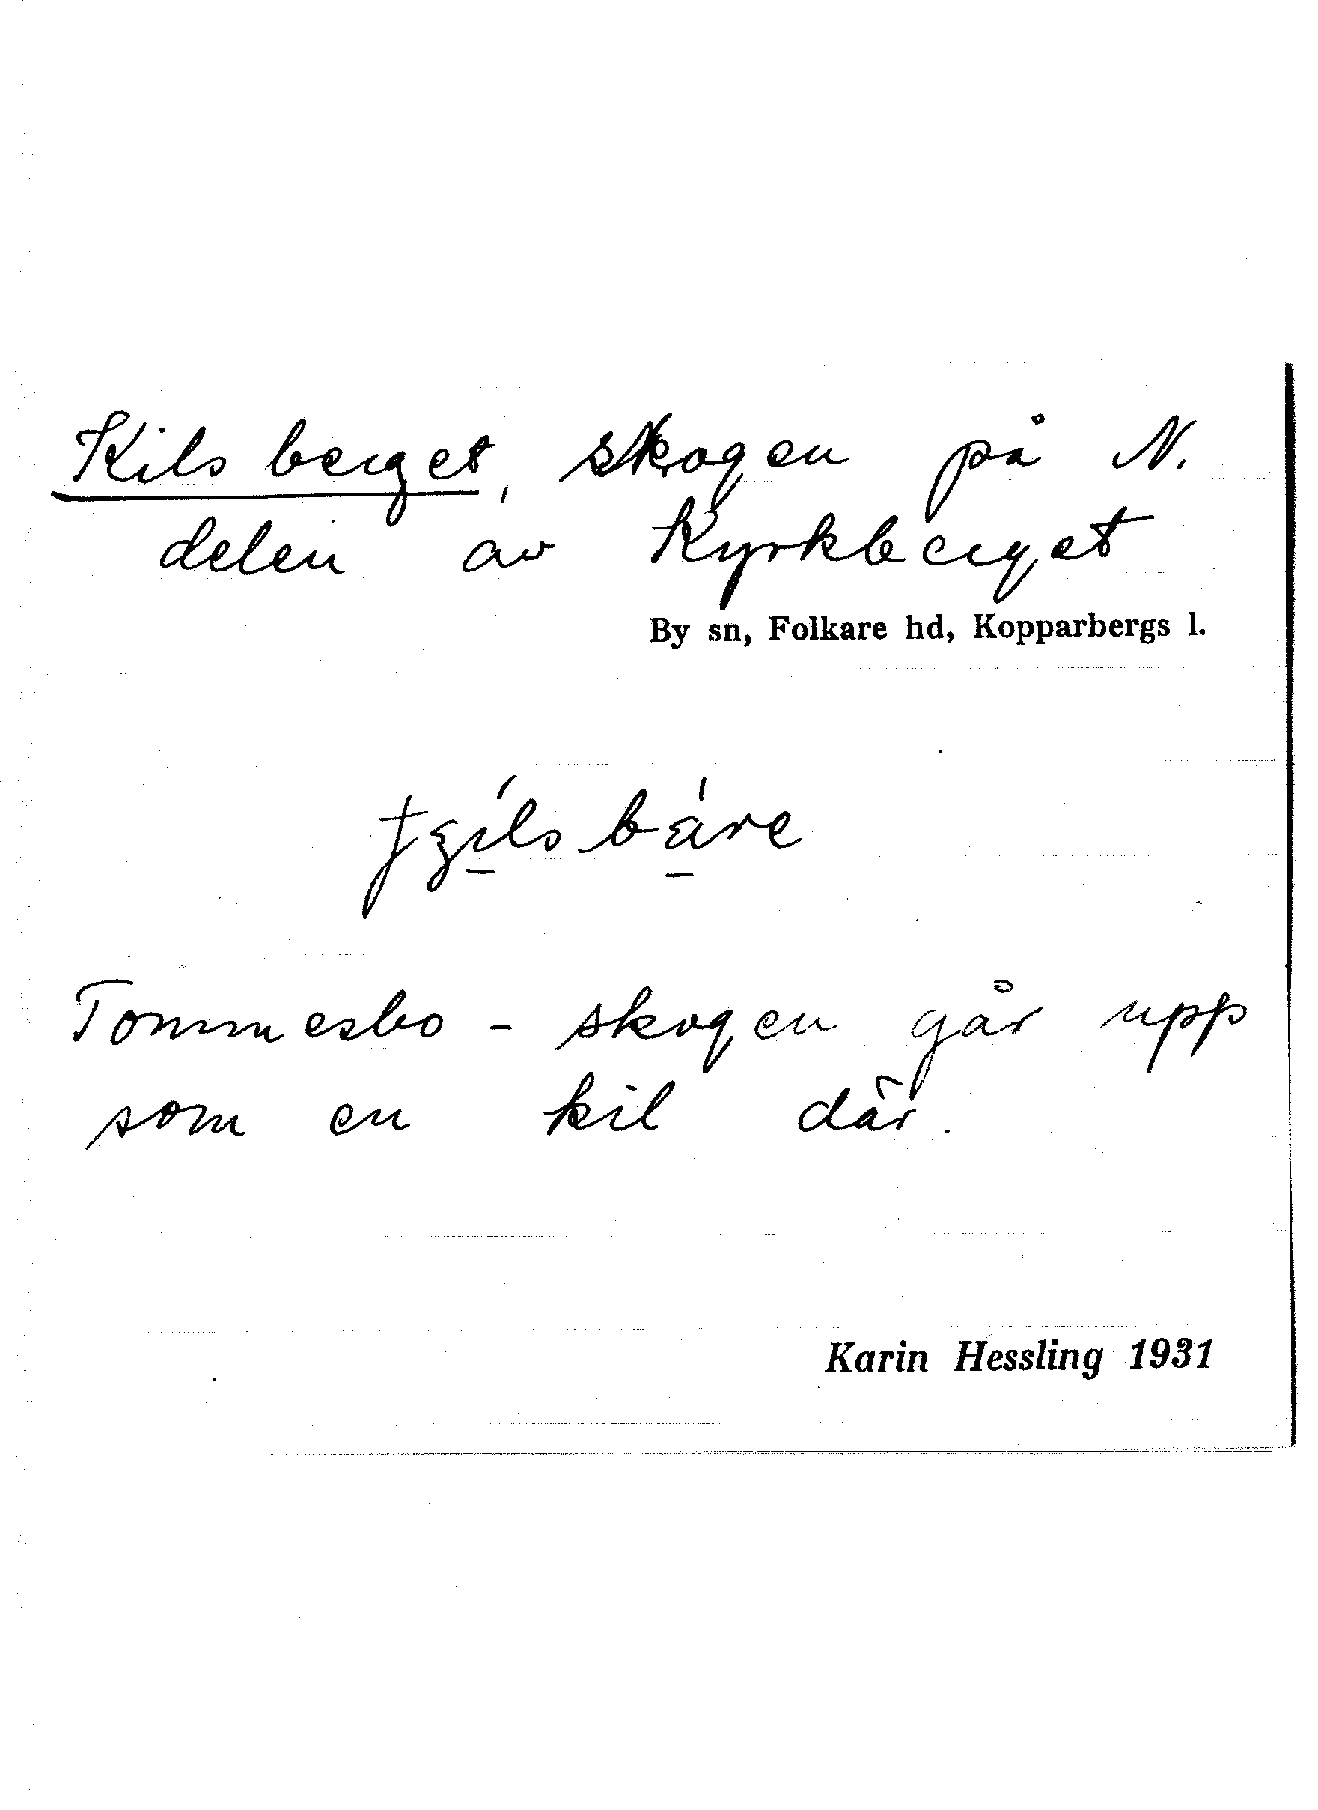 Kilsberget, skogen på N.
delen av Kyrkberget
By sn, Folkare hd, Kopparbergs l.
Tommesbo - skogen går upp
som en kil där.
Karin Hessling 1931